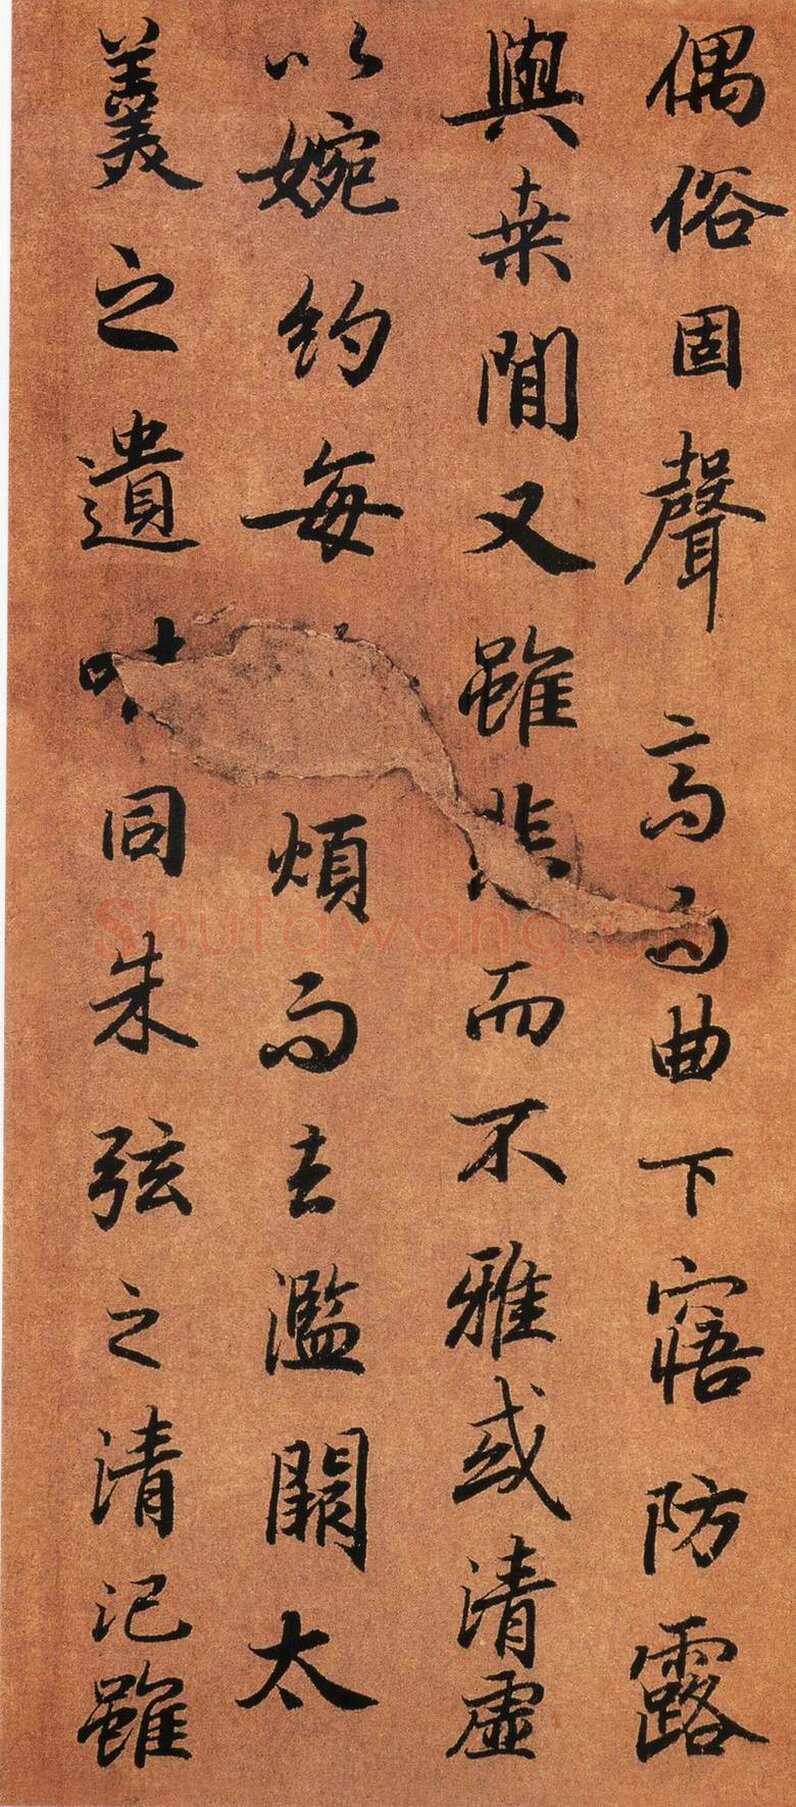 偶俗固聲高而曲下寤防露
與桒閒又雖悲而不雅或清虛
以婉約每煩而去濫闕太
羹之遺味同朱弦之清汜雖
shufawang.cn